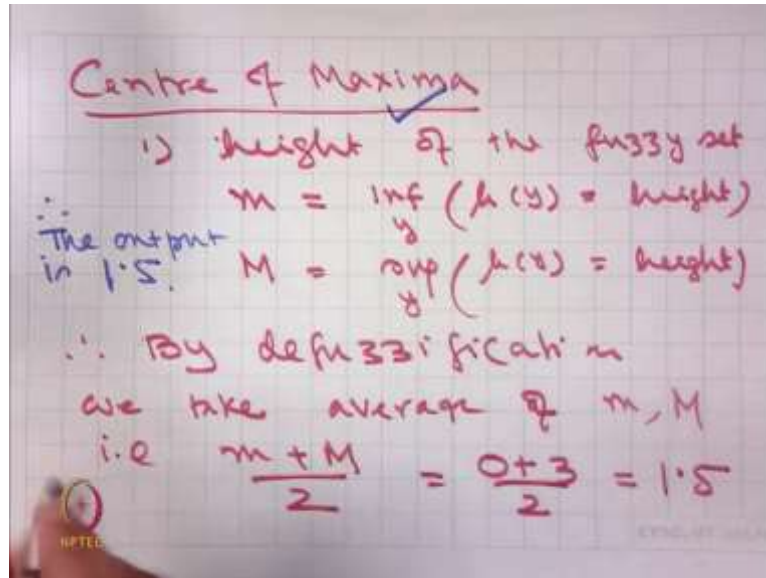 Centre of Maxima
1) height of the fuzzy set
m = inf y (μ(y) = height)
∴ The output
is 1.5.
M = sup y (μ(y) = height)
∴ By defuzzification
we take average of m, M
i.e m + M / 2 = 0 + 3 / 2 = 1.5
NPTEL